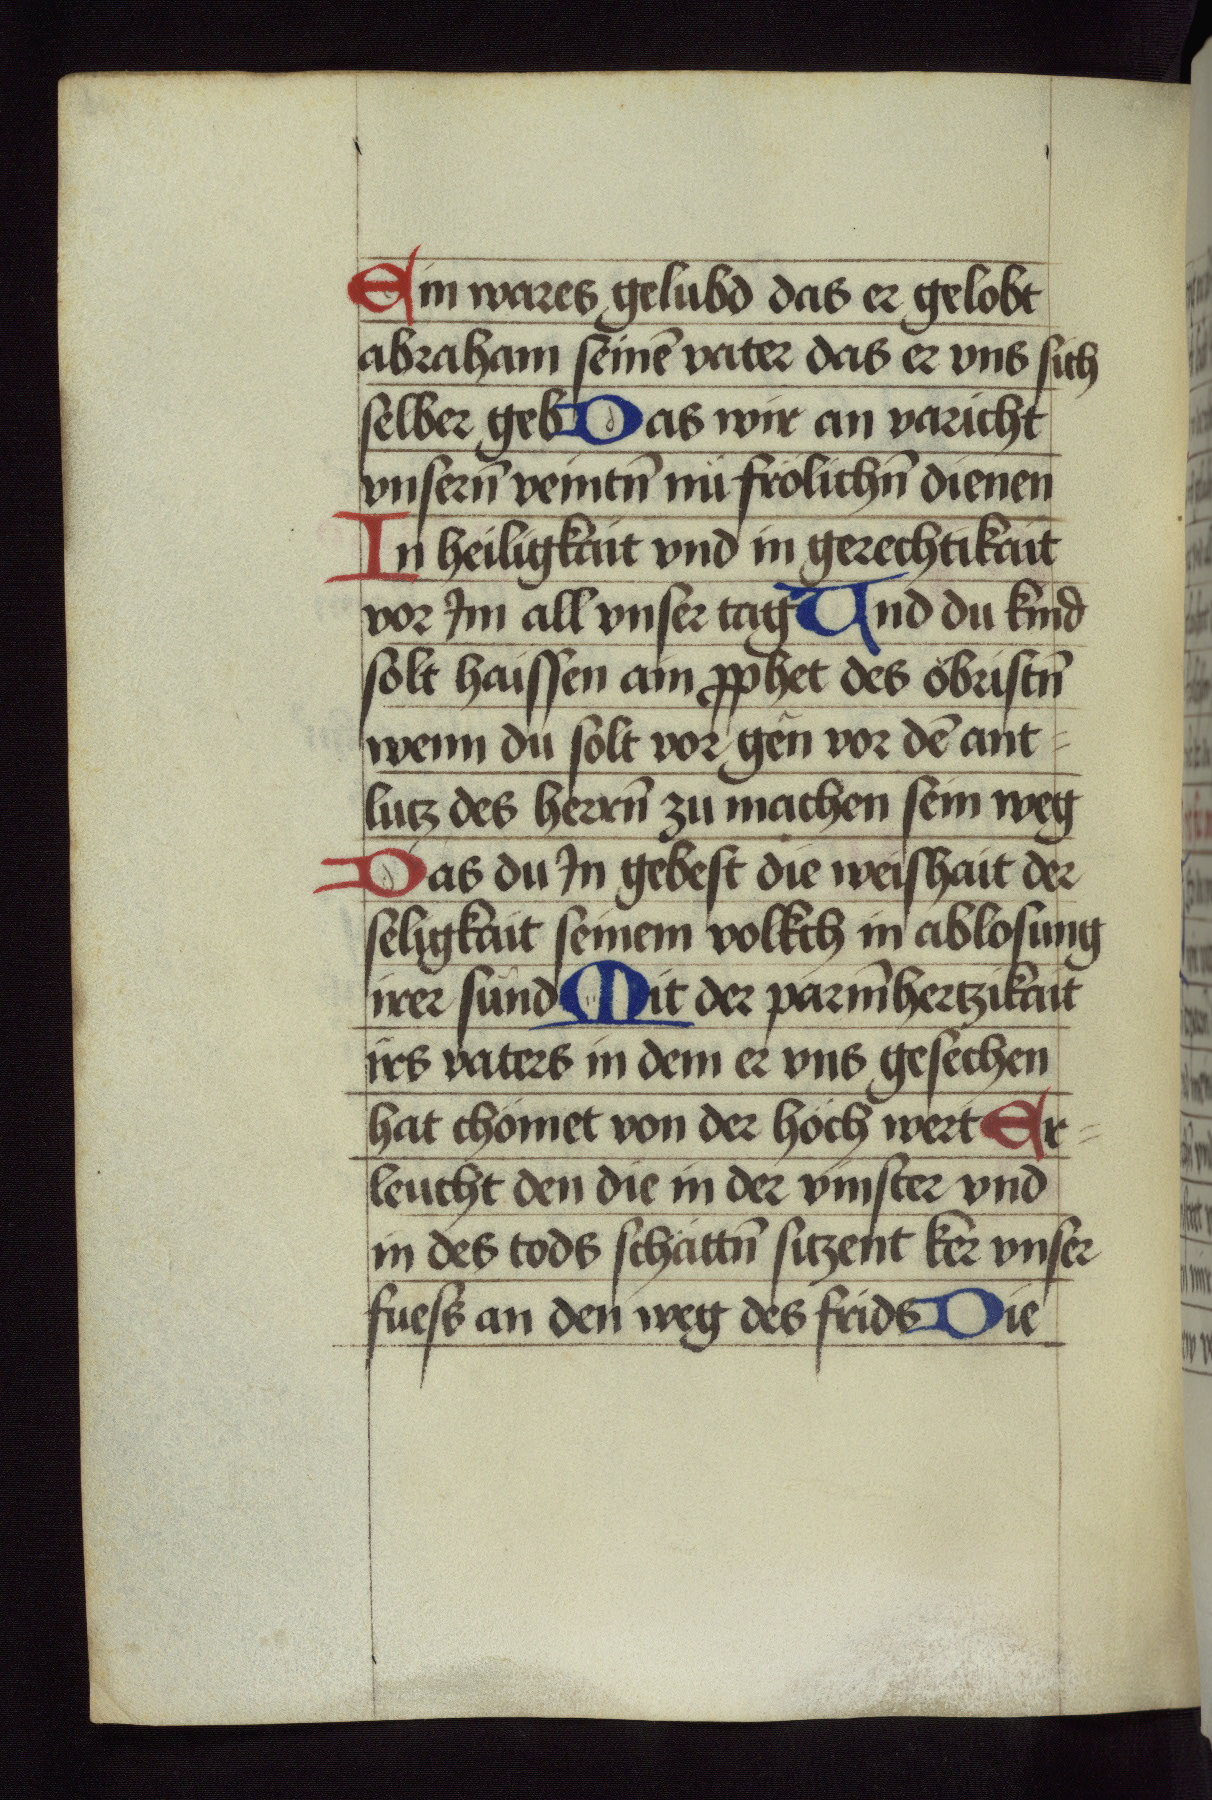 Ein wares gelubd das er gelobt
abraham seinē vater das er vns sich
selber geb Das wir an varicht
vnserñ veintñ nü frölichñ dienen
In heiligkait vnd in gerechtikait
vor Im all vnser tag Und du kind
solt haissen ain ꝓphet des öbristñ
wenn du solt vor gen vor dē ant=
lutz des herrñ zu machen sein weg
Das du In gebest die weishait der
seligkait seinem volkch in ablosung
irer sünd Mit der parm̄hertzikait
irs vaters in dem er vns gesechen
hat chömet von der höch wert Er=
leucht den die in der vinster vnd
in des tods schättñ sitzent ker vnser
fuess an den weg des frids Die